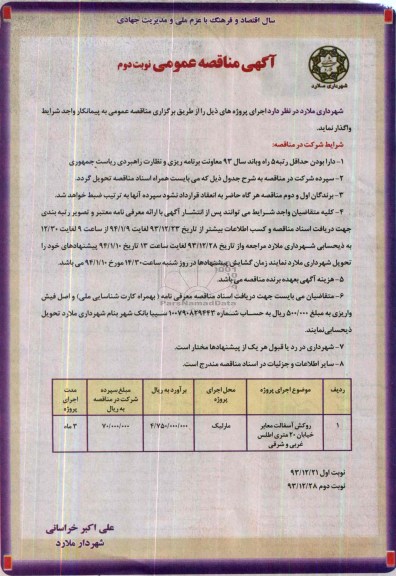 سال اقتصاد و فرهنگ با عزم ملی و مدیریت جهادی
آگهی مناقصه عمومی نوبت دوم
شهرداری ملارد
شهرداری ملارد در نظر دارد اجرای پروژه های ذیل را از طریق برگزاری مناقصه عمومی به پیمانکار واجد شرایط
واگذار نماید.
شرایط شرکت در مناقصه:
۱- دارا بودن حداقل رتبه ۵ راه وباند سال ۹۳ معاونت برنامه ریزی و نظارت راهبردی ریاست جمهوری
۲- سپرده شرکت در مناقصه به شرح جدول ذیل که می بایست همراه اسناد مناقصه تحویل گردد.
۳- برندگان اول و دوم مناقصه هر گاه حاضر به انعقاد قرارداد نشود سپرده آنها به ترتیب ضبط خواهد شد.
۴- کلیه متقاضیان واجد شرایط می توانند پس از انتشار آگهی با ارائه معرفی نامه معتبر و تصویر رتبه بندی
جهت دریافت اسناد مناقصه و کسب اطلاعات بیشتر از تاریخ ۹۳/۱۲/۲۳ لغایت ۹۴/۱/۹ از ساعت ۹ لغایت ۱۲/۳۰
به ذیحسابی شهرداری ملارد مراجعه واز تاریخ ۹۳/۱۲/۲۸ لغایت ساعت ۱۳ تاریخ ۹۴/۱/۱۰ پیشنهادهای خود را
تحویل شهرداری ملارد نمایند زمان گشایش پیشنهادها در روز شنبه ساعت ۱۴/۳۰ مورخ ۹۴/۱/۱۰ می باشد.
۵- هزینه آگهی بعهده برنده مناقصه می باشد.
۶- متقاضیان می بایست جهت دریافت اسناد مناقصه معرفی نامه ( بهمراه کارت شناسایی ملی ) و اصل فیش
واریزی به مبلغ ۵۰۰/۰۰۰ ریال به حساب شماره ۱۰۰۷۹۰۸۲۹۴۴۳ سیبا بانک شهر بنام شهرداری ملارد تحویل
ذیحسابی نمایند.
۷- شهرداری در رد یا قبول هر یک از پیشنهادها مختار است.
۸- سایر اطلاعات و جزئیات در اسناد مناقصه مندرج است.
ردیف موضوع اجرای پروژه محل اجرای پروژه برآورد به ریال مبلغ سپرده شرکت در مناقصه به ریال مدت اجرای پروژه
۱ روکش آسفالت معابر خیابان ۲۰ متری اطلس غربی و شرقی مارلیک ۴/۷۵۰/۰۰۰/۰۰۰ ۷۰/۰۰۰/۰۰۰ ۳ ماه
نوبت اول ۹۳/۱۲/۲۱
نوبت دوم ۹۳/۱۲/۲۸
علی اکبر خراسانی
شهردار ملارد